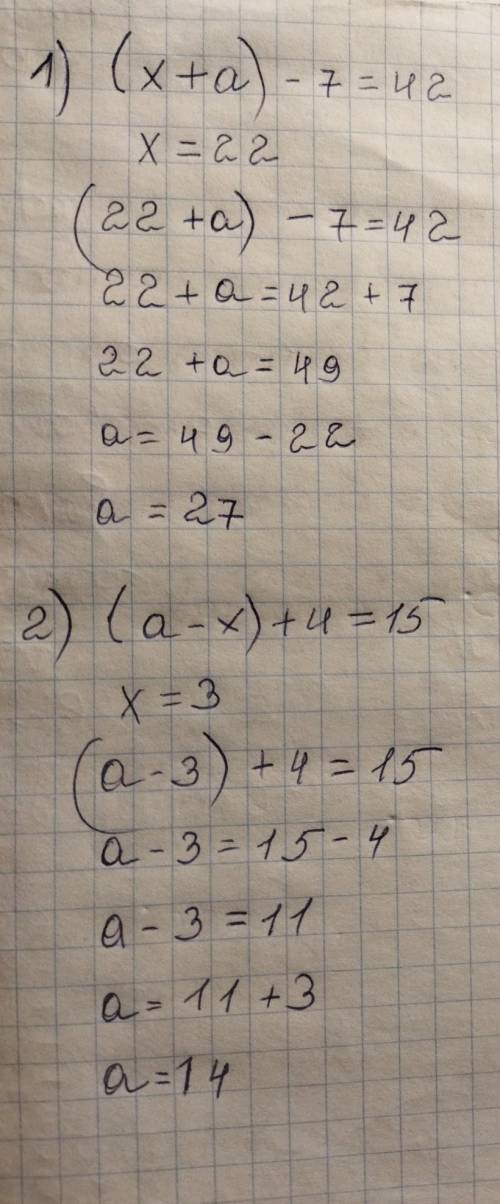 1) (x+a) - 7 = 42
x = 22
(22 + a) - 7 = 42
22 + a = 42 + 7
22 + a = 49
a = 49 - 22
a = 27
2) (a - x) + 4 = 15
x = 3
(a - 3) + 4 = 15
a - 3 = 15 - 4
a - 3 = 11
a = 11 + 3
a = 14